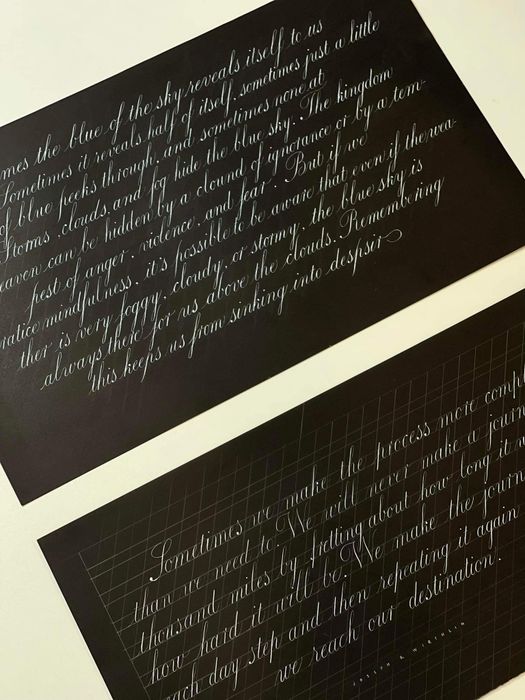 mes the blue of the sky reveals itself to us
Sometimes it reveals half of itself, sometimes just a little
of blue peeks through, and sometimes none at
Storms, clouds, and fog hide the blue sky. The kingdom
eaven can be hidden by a clound of ignorance or by a tem-
pest of anger, violence, and fear. But if we
ratice mindfulness, it's possible to be aware that even if the wea-
ther is very foggy, cloudy, or stormy, the blue sky is
always there for us above the clouds. Remembering
this keeps us from sinking into despair
Sometimes we make the process more compl
than we need to. We will never make a journ
thousand miles by fretting about how long it w
how hard it will be. We make the journ
each day step and then repeating it again
we reach our destination.